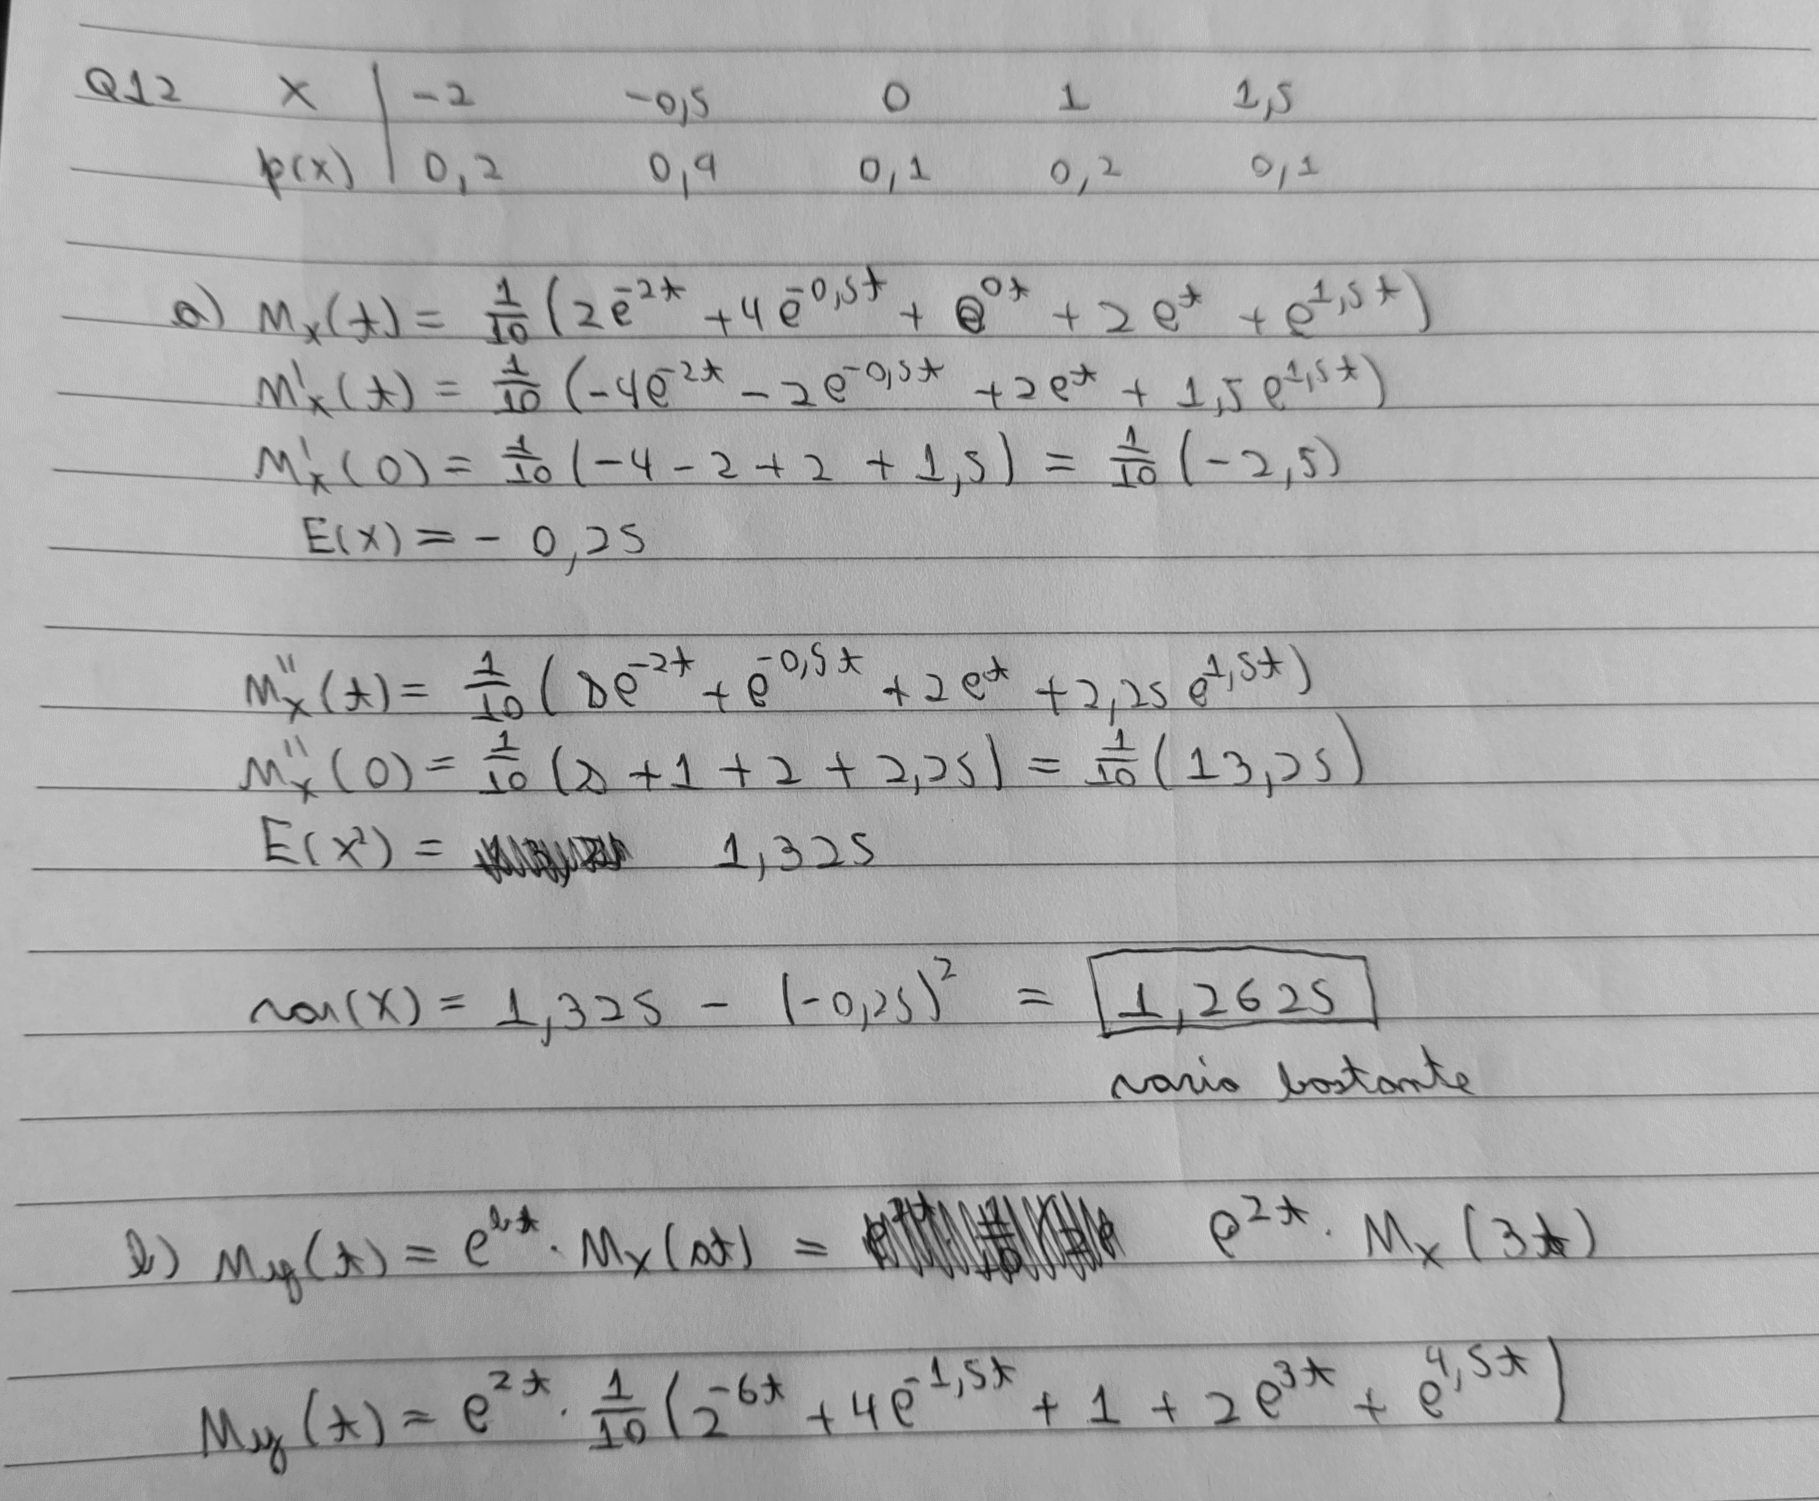 Q12 X | -2 -0,5 0 1 1,5
p(x) | 0,2 0,4 0,1 0,2 0,1
a) Mx(t) = 1/10 (2e^-2t + 4e^-0,5t + e^0t + 2e^t + e^1,5t)
M'x(t) = 1/10 (-4e^-2t - 2e^-0,5t + 2e^t + 1,5e^1,5t)
M'x(0) = 1/10 (-4 - 2 + 2 + 1,5) = 1/10 (-2,5)
E(X) = - 0,25
M''x(t) = 1/10 (8e^-2t + e^-0,5t + 2e^t + 2,25e^1,5t)
M''x(0) = 1/10 (8 + 1 + 2 + 2,25) = 1/10 (13,25)
E(X²) = 1,325
var(X) = 1,325 - (-0,25)² = 1,2625
varia bastante
b) My(t) = e^bt · Mx(at) = e^2t · Mx(3t)
My(t) = e^2t · 1/10 (2^-6t + 4e^-1,5t + 1 + 2e^3t + e^4,5t)